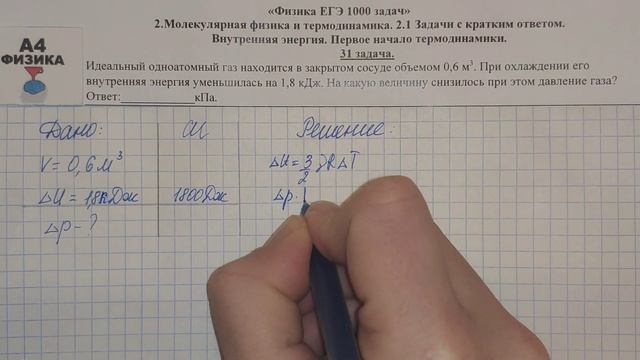 «Физика ЕГЭ 1000 задач»
2.Молекулярная физика и термодинамика. 2.1 Задачи с кратким ответом.
Внутренняя энергия. Первое начало термодинамики.
31 задача.
А4
ФИЗИКА
Идеальный одноатомный газ находится в закрытом сосуде объемом 0,6 м³. При охлаждении его
внутренняя энергия уменьшилась на 1,8 кДж. На какую величину снизилось при этом давление газа?
Ответ:____________кПа.
Дано: СИ Решение:
V = 0,6 м³ ΔU = 3/2 νRΔT
ΔU = 1,8 кДж 1800 Дж Δp·
Δp - ?